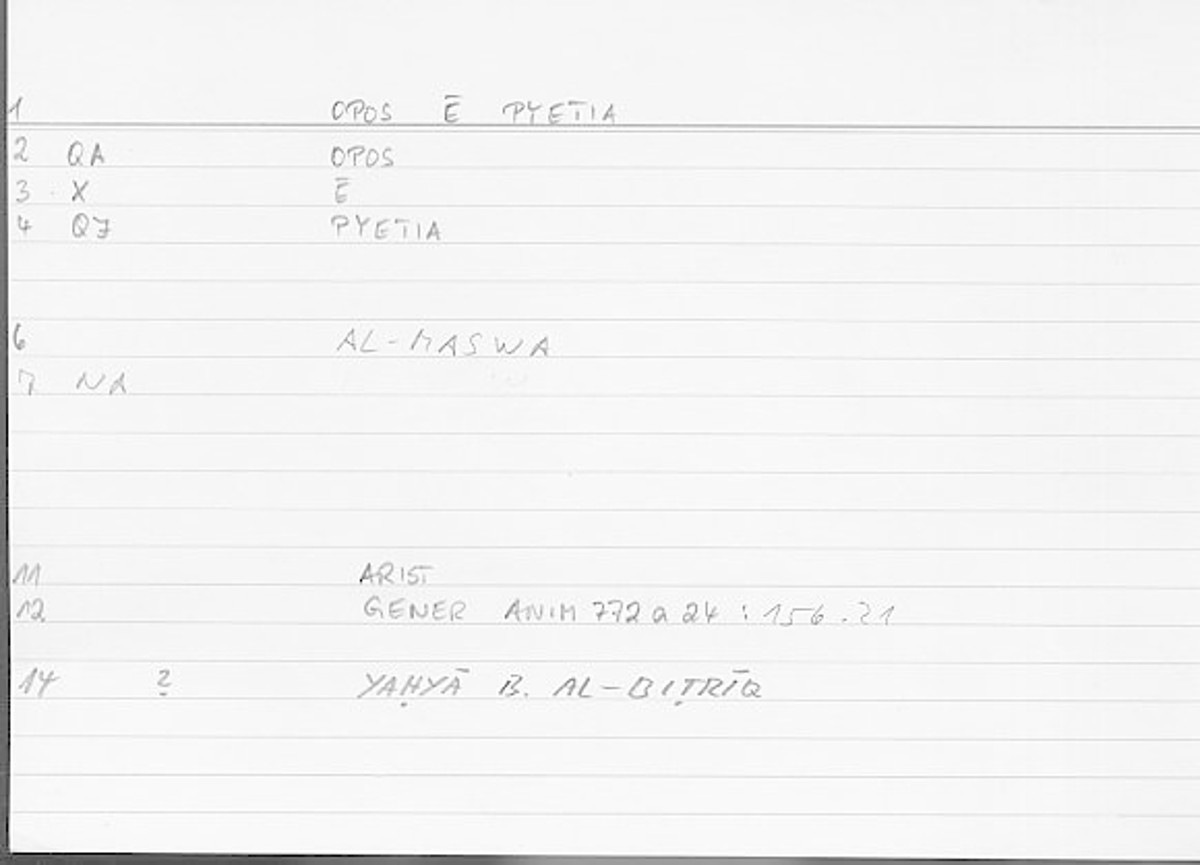 1 OPOS Ē PYETIA
2 QA OPOS
3 X Ē
4 QJ PYETIA
6 AL-MASWA
7 NA
11 ARIST
12 GENER ANIM 772 a 24 : 156.21
14 ? YAḤYĀ B. AL-BIṬRĪQ